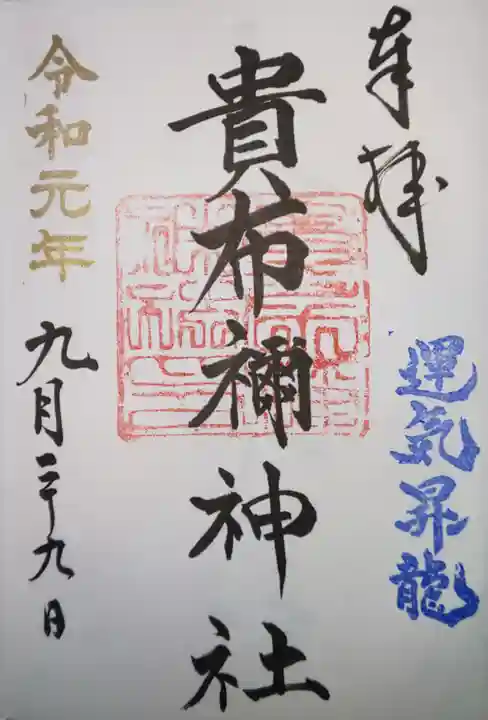 奉拝
運気昇龍
貴布禰神社
令和元年
九月二十九日